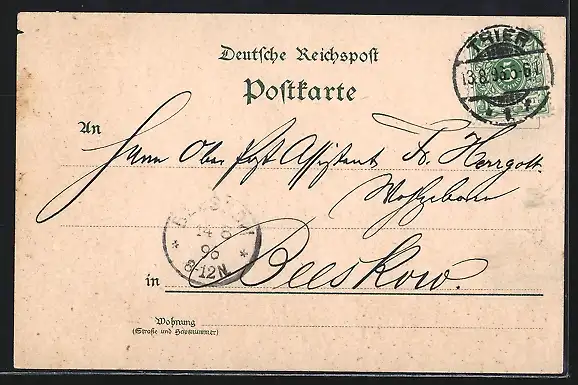 Deutsche Reichspost
Postkarte
THIER
13.8.96.5-6N.
An
Herrn Ober Post Assistent Fr. Herrgott
Wohlgeboren
BEESKOW
14 8
96
8-12N.
in Beeskow.
Wohnung
(Straße und Hausnummer)